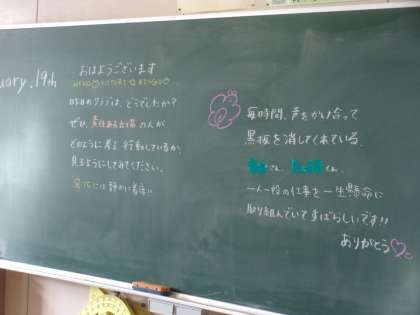 uary. 19th
おはようございます
昨日のクラブは、どうでしたか?
ぜひ、責任ある立場の人が
どのように考え行動しているか
見るようにしてみてください。
毎時間、声をかけ合って
黒板を消してくれている、
さん、くん
一人一役の仕事を一生懸命に
取り組んでいてすばらしいです!!
ありがとう♡